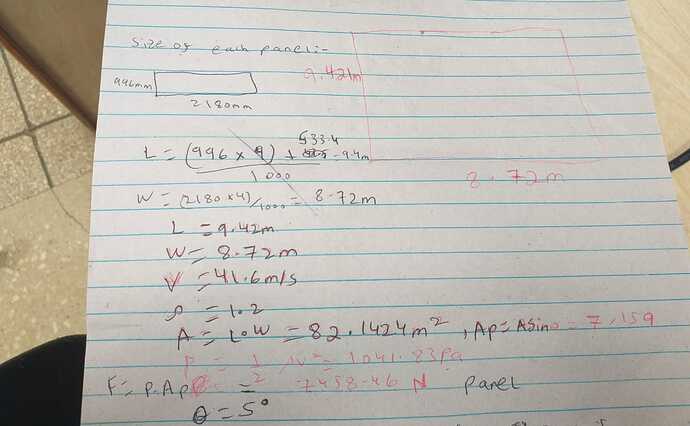 Size of each panel:-
996mm
2180mm
9.421m
8.72m
L = (996 × 9) + 533.4 = 9.4m
1000
W = (2180×4)/1000 = 8.72m
L = 9.42m
W = 8.72m
V = 41.6m/s
ρ = 1.2
A = L∘W = 82.1424m², Ap = Asinθ = 7.159
P = 1/2 ρV² = 1041.83pa
F = P.Ap = 7458.46 N panel
θ = 5°